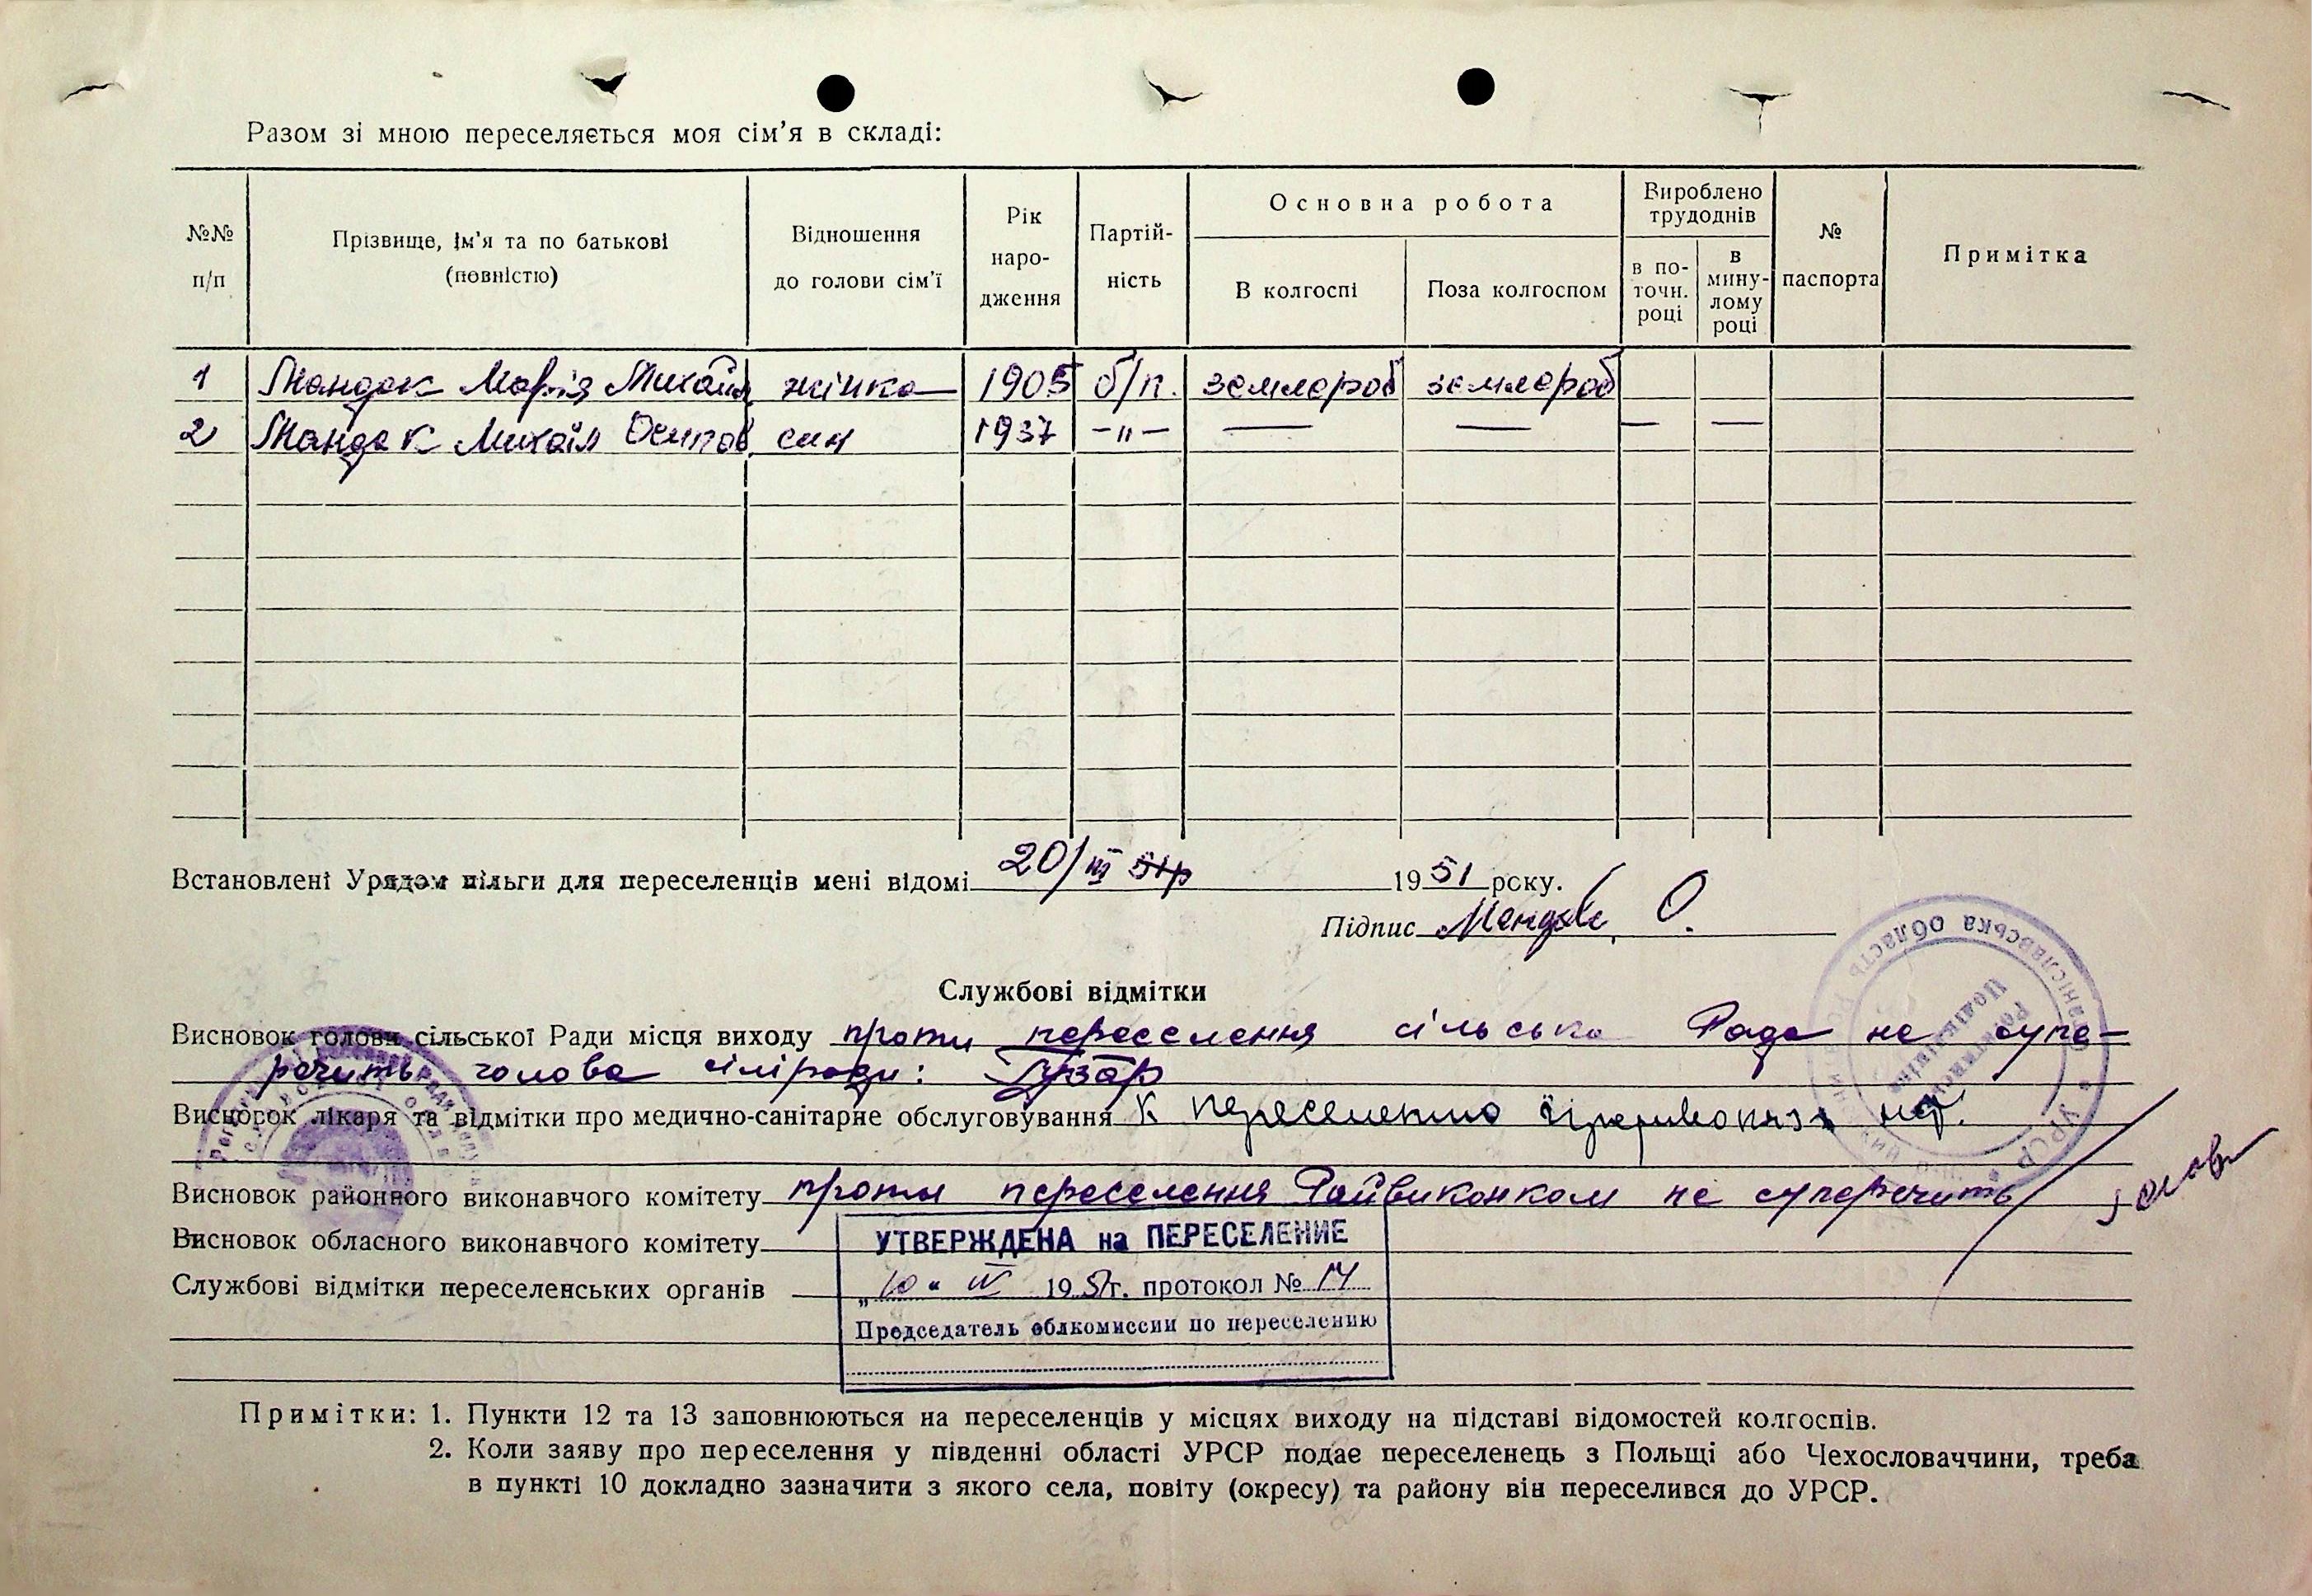 Разом зі мною переселяється моя сім'я в складі:
№№ п/п
Прізвище, ім'я та по батькові (повністю)
Відношення до голови сім'ї
Рік наро-дження
Партій-ність
Основна робота
В колгоспі
Поза колгоспом
Вироблено трудоднів
в по-точн. році
в мину-лому році
№ паспорта
Примітка
1 Мандак Марія Михайл. жінка 1905 б/п. землероб землероб
2 Мандак Михаїл Осипов. син 1937 —"— — — — —
Встановлені Урядом пільги для переселенців мені відомі 20/III 51р 1951 року.
Підпис Мандак О.
Службові відмітки
Висновок голови сільської Ради місця виходу проти переселення сільська Рада не супе-
речить голова сілради: Гузар
Висновок лікаря та відмітки про медично-санітарне обслуговування К переселению
Висновок районного виконавчого комітету проти переселення Райвиконком не суперечить
Висновок обласного виконавчого комітету
УТВЕРЖДЕНА на ПЕРЕСЕЛЕНИЕ
Службові відмітки переселенських органів
„10" IV 1951г. протокол № 14
Председатель облкомиссии по переселению
Примітки: 1. Пункти 12 та 13 заповнюються на переселенців у місцях виходу на підставі відомостей колгоспів.
2. Коли заяву про переселення у південні області УРСР подає переселенець з Польщі або Чехословаччини, треба
в пункті 10 докладно зазначити з якого села, повіту (окресу) та району він переселився до УРСР.